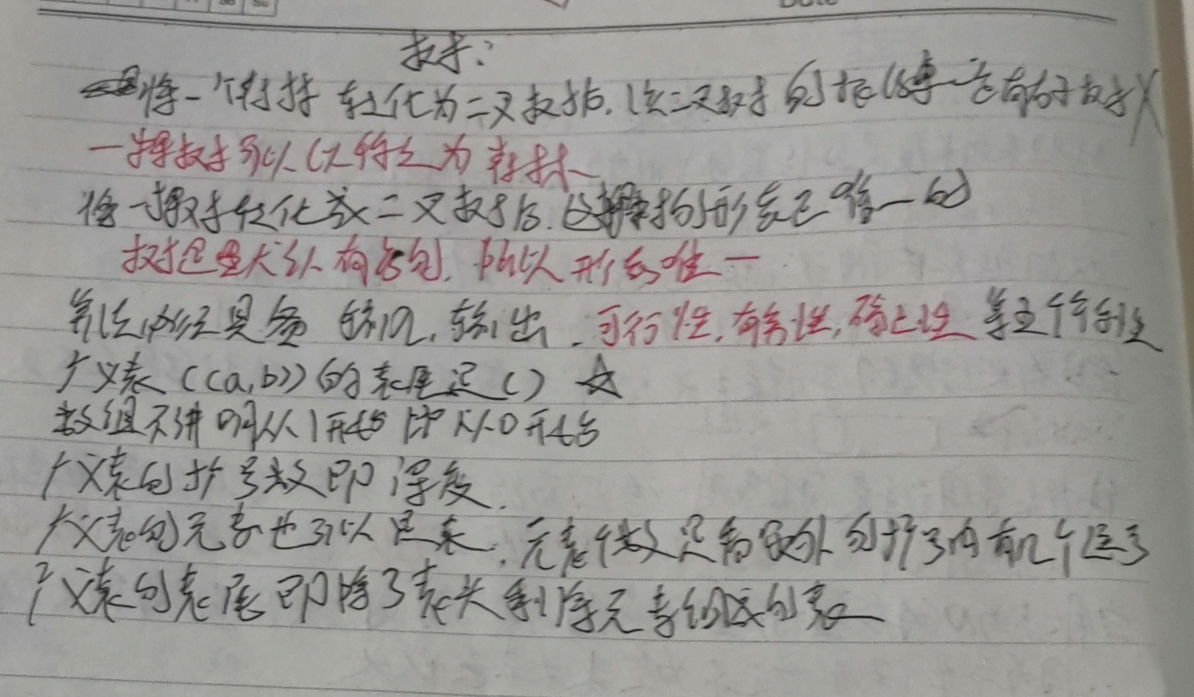 树:
将一个树转化为二叉树后,该二叉树的根结点一定有右子树X
一棵树可以认为它为森林
将一棵树转化成二叉树后,这棵树的形态是唯一的
树是默认有序的,所以形态唯一
算法必须具备 输入,输出,可行性,有穷性,确定性 等五个特性
广义表((a,b))的表尾是()☆
数组不讲明从1开始即从0开始
广义表的括号数即深度.
广义表的元素也可以是表.元素个数只看最外的括号内有几个逗号
广义表的表尾即除了表头剩余元素组成的表